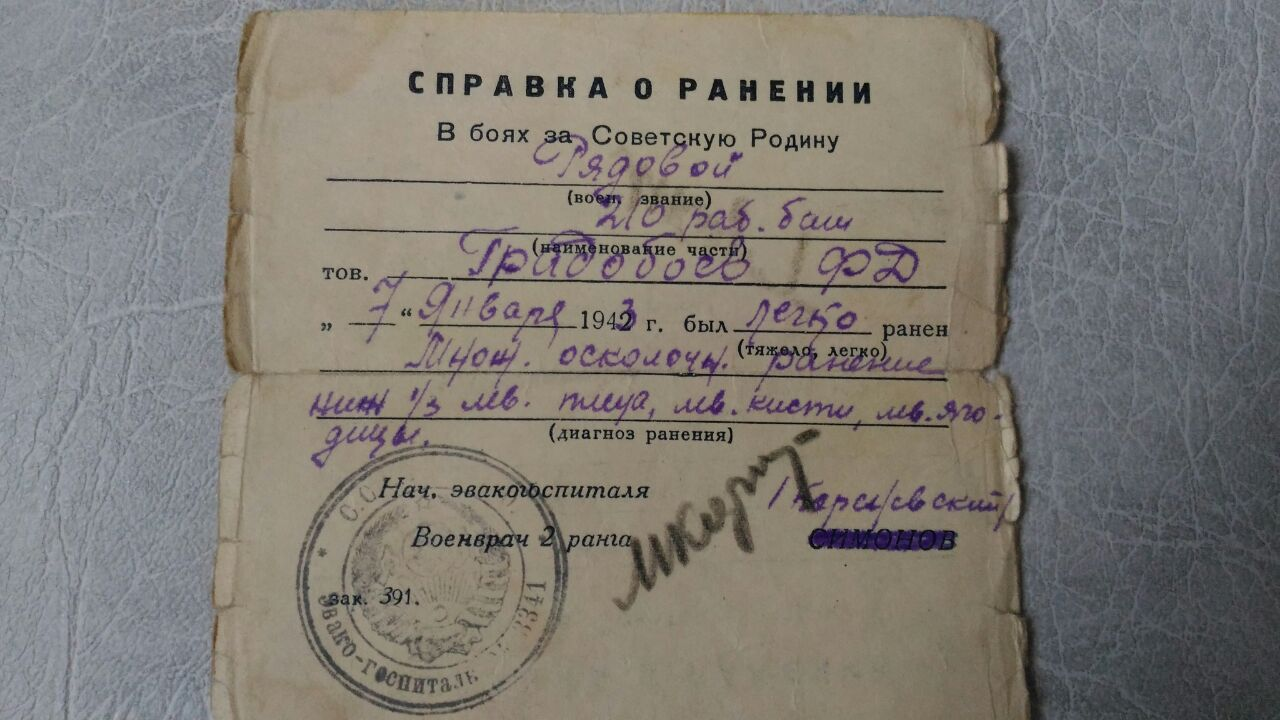 СПРАВКА О РАНЕНИИ
В боях за Советскую Родину
Рядовой
(воен. звание)
210 раб. бат
(наименование части)
тов. Градобоев ФД
„ 7 “ Января 1943 г. был легко ранен
(тяжело, легко)
Множ. осколочн. ранение
ниж 1/3 лв. плеча, лв. кисти, лв. яго-
дицы.
(диагноз ранения)
Нач. эвакогоспиталя
Военврач 2 ранга
СИМОНОВ
зак. 391.
Эвако-госпиталь № 3341